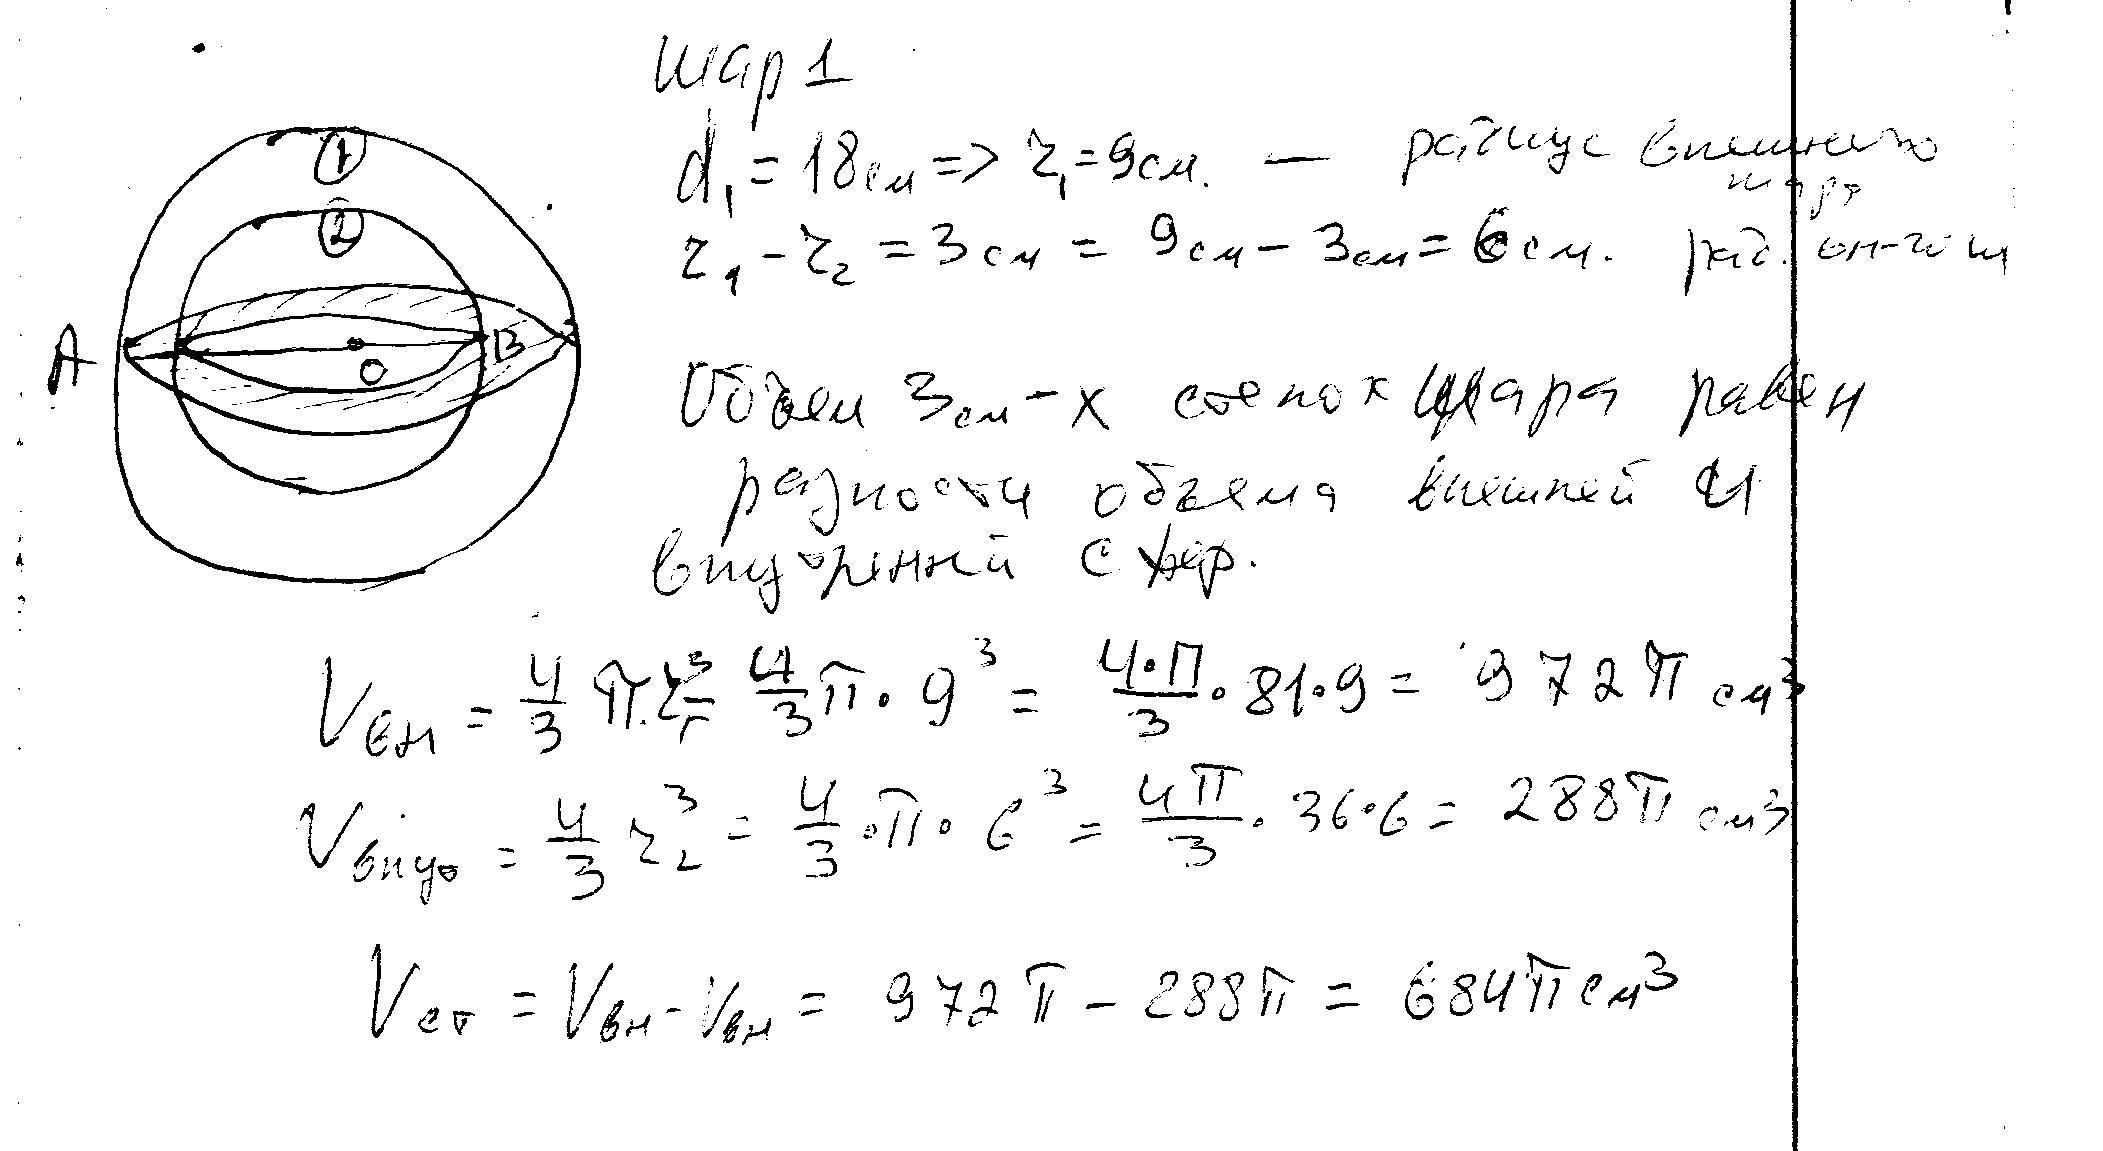 Шар 1
①
d₁ = 18см => r₁ = 9см. — радиус внешнего
шара
②
r₁ - r₂ = 3см = 9см - 3см = 6см. рад. вн-го ш
А
В
О
Объем 3см-х стенок шара равен
разности объема внешней и
внутренней сфер.
Vвн = 4/3 π·r₁³ = 4/3 π · 9³ = 4·π/3 · 81·9 = 972π см³
Vвнут = 4/3 r₂³ = 4/3 · π · 6³ = 4π/3 · 36·6 = 288π см³
Vст = Vвн - Vвн = 972π - 288π = 684π см³